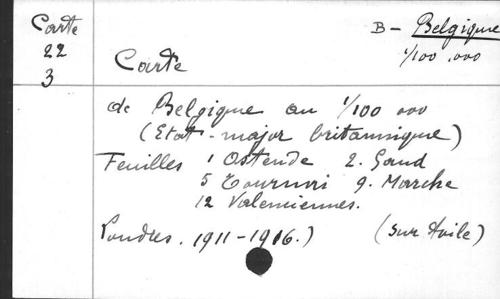 Carte
22
3
B - Belgique
1/100.000
Carte
de Belgique au 1/100 000
(Etat-major britannique)
Feuilles 1 Ostende 2. Gand
5 Tournai 9. Marche
12 Valenciennes.
Londres. 1911-1916.) (sur toile)